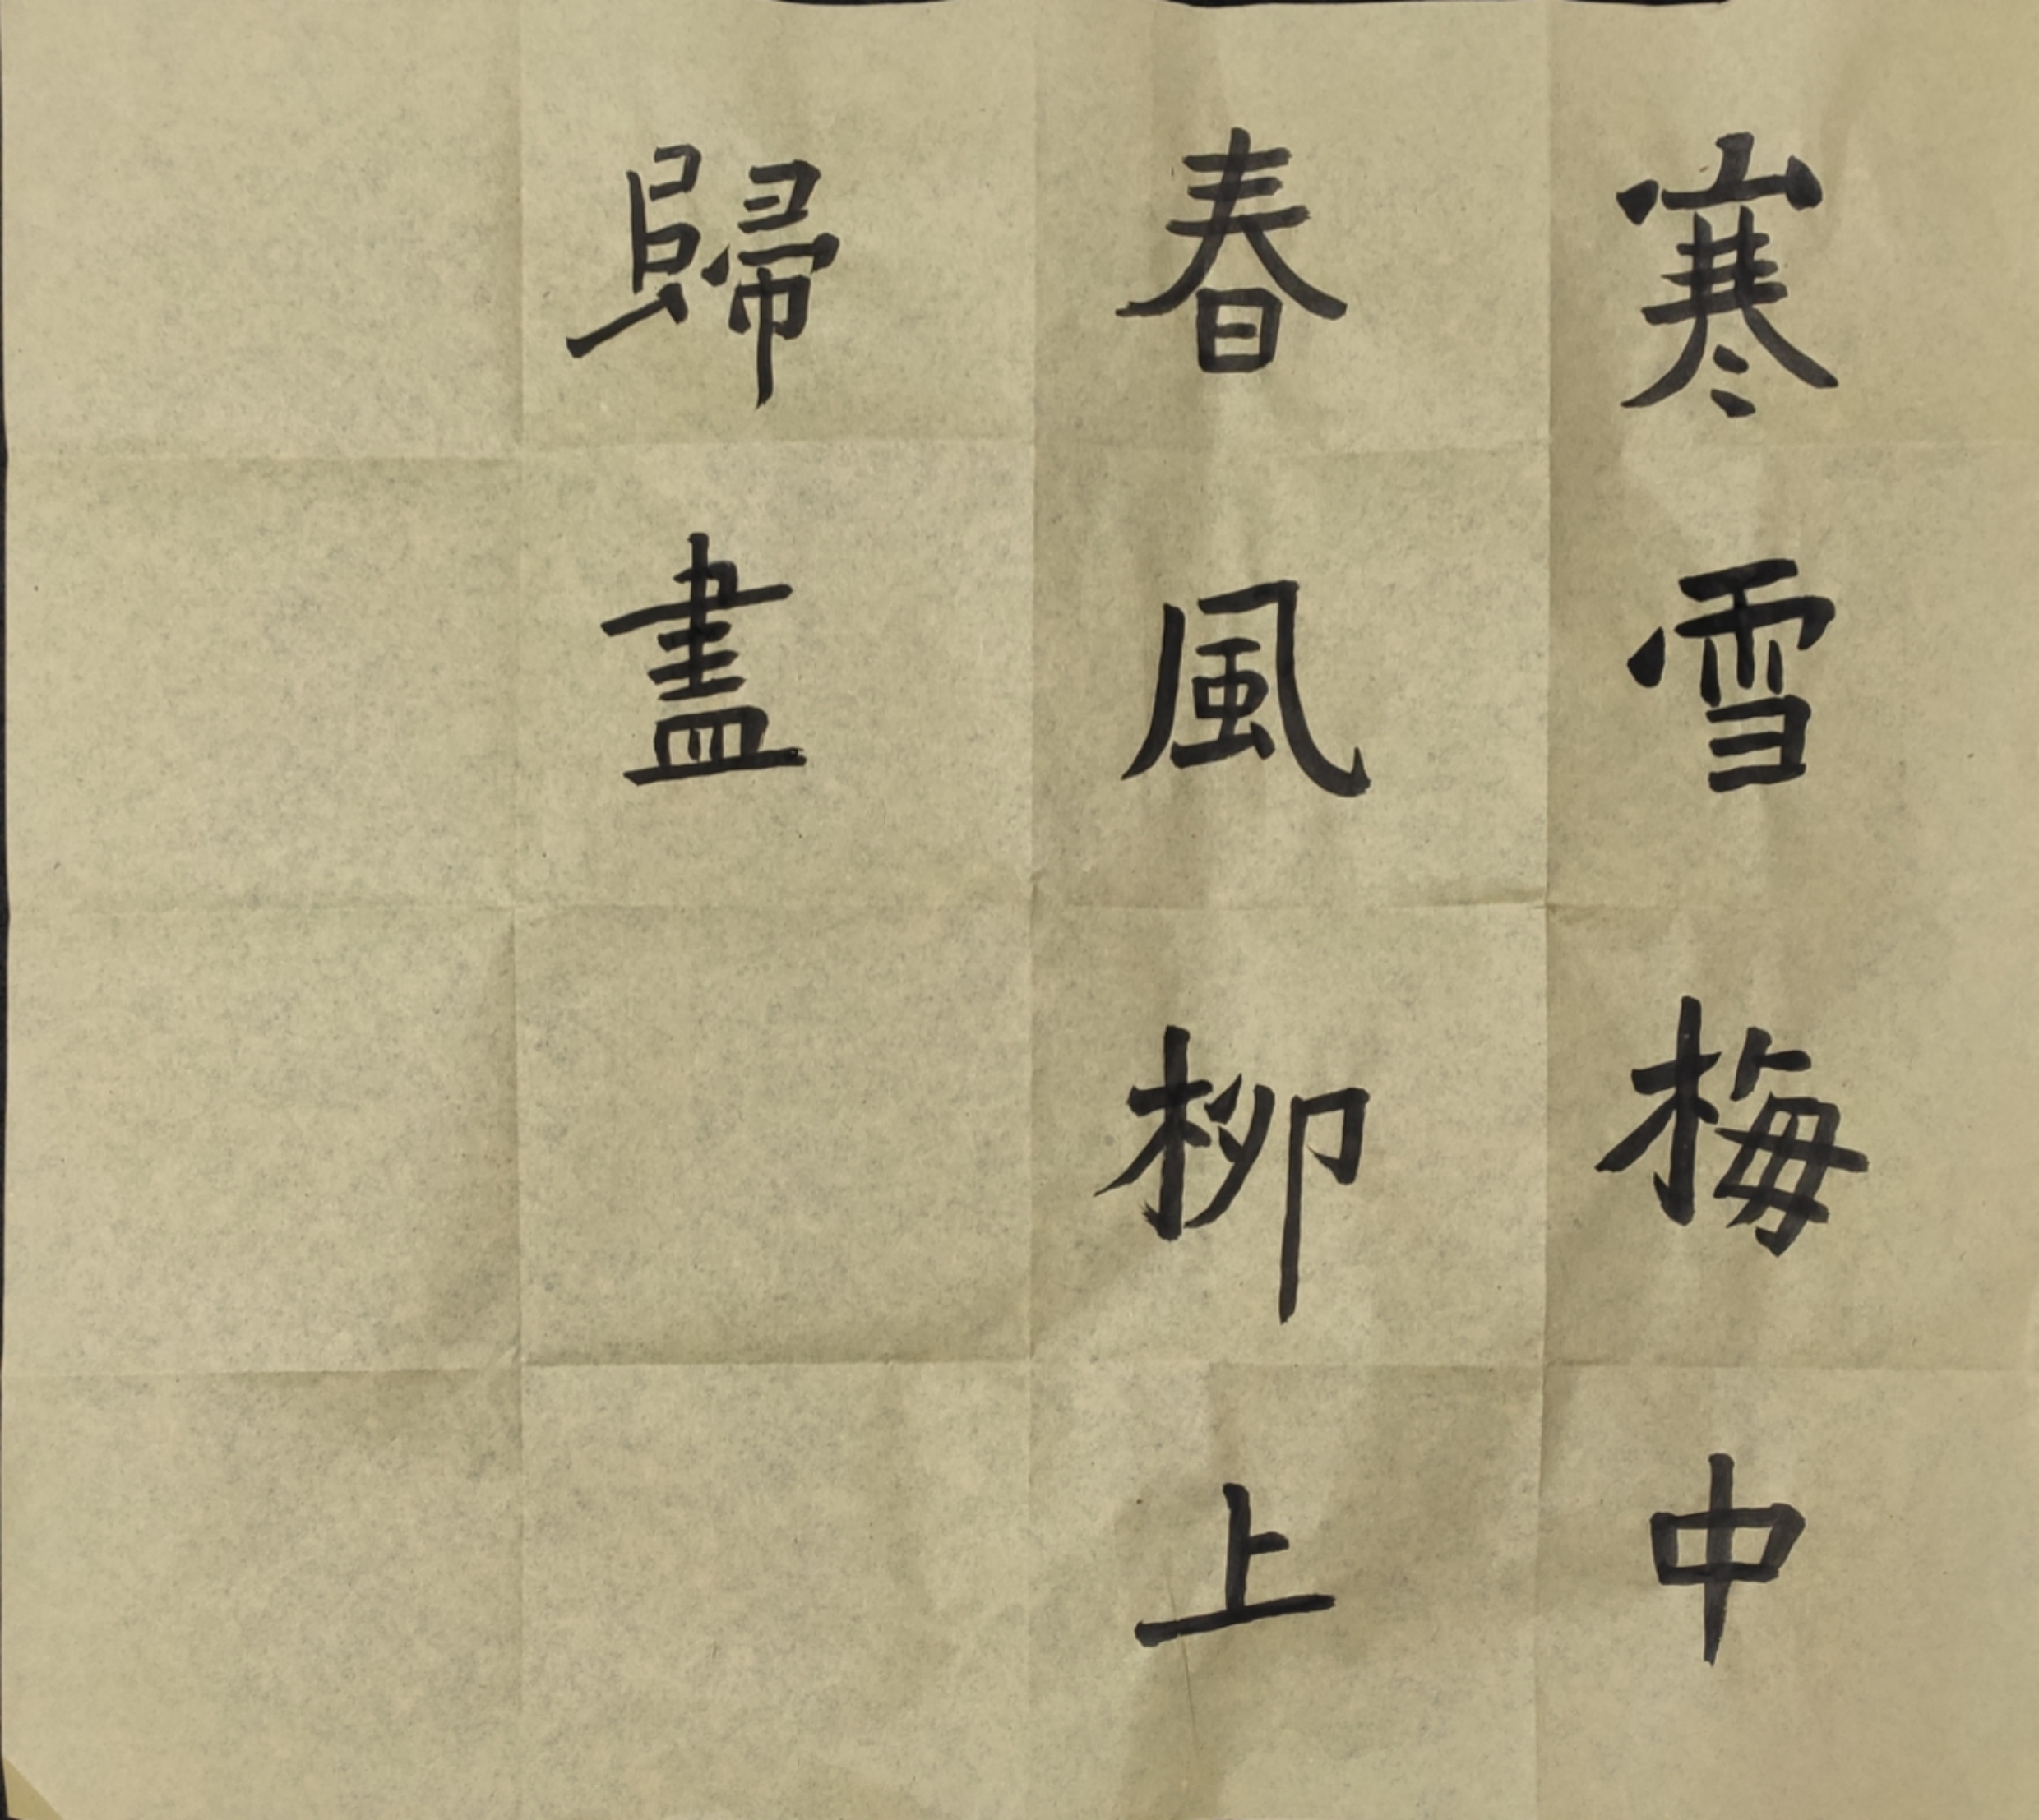 寒雪梅中
春風柳上
歸盡